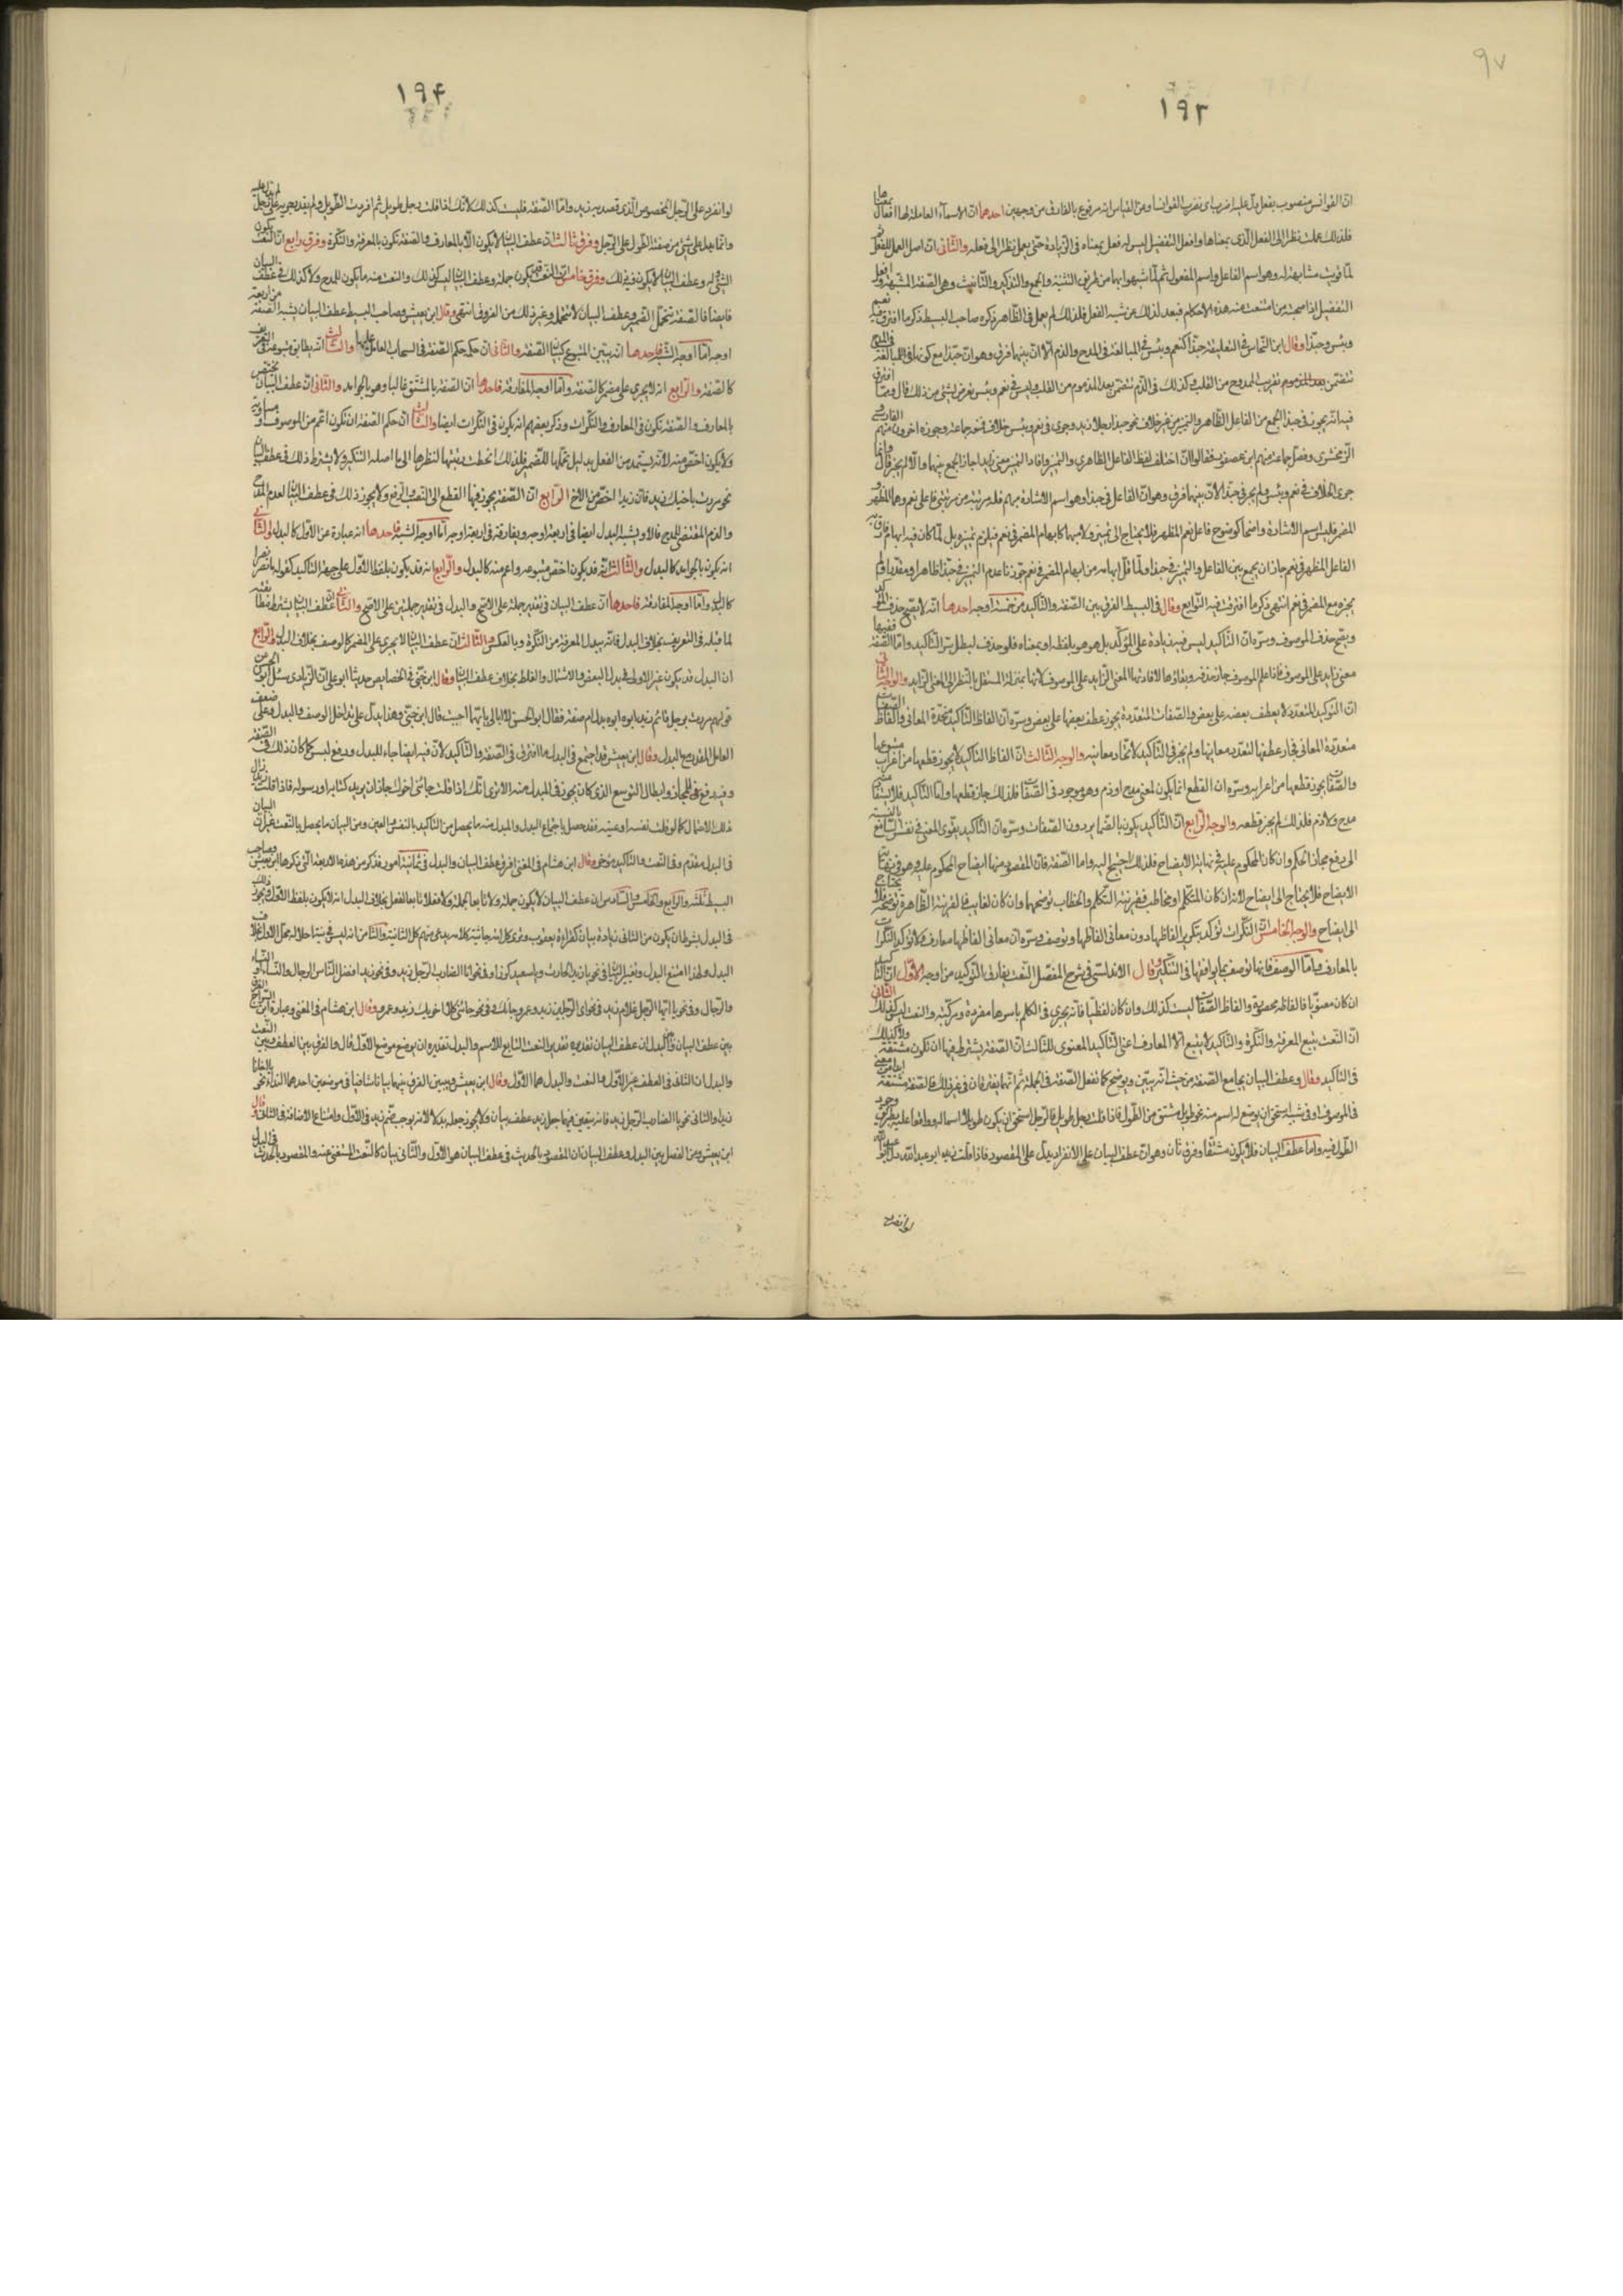 ٩٧
١٩٣
ان القوانس منصوب بفعل دل عليه اضرب اى نضرب القوانسا ومن القياس انه مرفوع بالفارق من وجهين احدهما ان الاسماء العاملة لها افعال بمعناها
فلذلك عملت نظرا الى الفعل الذى بمعناها وافعل التفضيل ليس له فعل بمعناه فى الزيادة حتى يعمل نظرا الى فعله والثانى ان اصل العمل للفعل ثم
لما قويت مشابهته له وهو اسم الفاعل واسم المفعول ثم لما شبه بهما من طريق التثنية والجمع والتذكير والتانيث وهى الصفة المشبهة وافعل
التفضيل اذا صحبته من امتنعت منه هذه الاحكام فبعد لذلك عن شبه الفعل فلذلك لم يعمل فى الظاهر ذكره صاحب البسيط ذكر ما افترق فيه نعم
وبئس وحبذا وقال ابن النحاس فى التعليقة حبذا كنعم وبئس فى المبالغة فى المدح والذم الا ان بينهما فرق وهو ان حبذا مع كونها للمبالغة فى المدح
تتضمن تقريب الممدوح من القلب وكذلك فى الذم تتضمن بعد المذموم من القلب وليس فى نعم وبئس تعرض لشئ من ذلك قال ومما افترق
فيه انه يجوز فى حبذا الجمع بين الفاعل الظاهر والتمييز من غير خلاف نحو حبذا رجلا زيد وجرى فى نعم وبئس خلاف فمنعه جماعة وجوزه اخرون منهم الفارسى
الزمخشرى وفصل جماعة منهم ابن عصفور فقالوا ان اختلف لفظ الفاعل الظاهر والتمييز وافاد التمييز معنى زايدا جاز الجمع بينهما والا لم يجز قال وانما
جرى الخلاف فى نعم وبئس ولم يجر فى حبذا لان بينهما فرق وهو ان الفاعل فى حبذا وهو اسم الاشارة مبهم فله مرتبة من مرتبتى فاعلى نعم وهما المظهر و
المضمر فليس اسم الاشارة واضحا كوضوح فاعل نعم المظهر فلا يحتاج الى تمييز ولا مبهما كابهام المضمر فى نعم فيلزم تمييزه بل لما كان فيه ابهام فارق به
الفاعل المظهر فى نعم جاز ان يجمع بين الفاعل والتمييز فى حبذا ولما قل ابهامه من ابهام المضمر فى نعم جوزنا عدم التمييز فى حبذا ظاهرا ومقدرا ولم
يجزه مع المضمر فى نعم انتهى ذكر ما افترقت فيه التوابع وقال فى البسيط الفرق بين الصفة والتاكيد من خمسة اوجه احدها انه لا يصح حذف المؤكد
ويصح حذف الموصوف وسره ان التاكيد ليس فيه زيادة على المؤكد بل هو هو بلفظه او بمعناه فلو حذف لبطل سر التاكيد واما الصفة ففيها
معنى زايد على الموصوف فاذا علم الموصوف جاز حذفه وبقاؤها لافادتها المعنى الزايد على الموصوف لانها بمنزلة المستقل بالنظر الى المعنى الزايد والوجه الثانى
ان التوكيد المتعدد لا يعطف بعضه على بعض والصفات المتعددة يجوز عطف بعضها على بعض وسره ان الفاظ التاكيد متحدة المعانى والفاظ الصفات
متعددة المعانى فجاز عطفها لتعدد معانيها ولم يجز فى التاكيد لاتحاد معانيه والوجه الثالث ان الفاظ التاكيد لا يجوز قطعها من اعراب متبوعها
والصفات يجوز قطعها من اعرابه وسره ان القطع انما يكون لمعنى مدح او ذم وهو موجود فى الصفات فلذلك جاز قطعها واما التاكيد فلا يستفاد منه
مدح ولا ذم فلذلك لم يجز قطعه والوجه الرابع ان التاكيد يكون بالضماير دون الصفات وسره ان التاكيد يقوى المعنى فى نفس السامع بالنسبة
الى رفع مجاز الحكم وان كان المحكوم عليه فى نهاية الايضاح فلذلك احتيج اليه واما الصفة فان المقصود منها ايضاح المحكوم عليه وهو فى نهاية
الايضاح فلا يحتاج الى ايضاح لانه ان كان لمتكلم او مخاطب فقرينة التكلم والخطاب توضحهما وان كان لغايب فالقرينة الظاهرة توضحه فلا يحتاج
الى ايضاح والوجه الخامس ان النكرات تؤكد بتكرير الفاظها دون معانى الفاظها وتوصف وسره ان معانى الفاظها معارف فلا تؤكد النكرات
بالمعارف واما الوصف فانها توصف بما يوافقها فى التنكير وقال الاندلسى فى شرح المفصل النعت يفارق التوكيد من اوجه الاول ان التاكيد
ان كان معنويا فالفاظه محصورة والفاظ الصفات ليست كذلك وان كان لفظيا فانه يجرى فى الكلم باسرها مفردة ومركبة والنعت ليس كذلك الثانى
ان النعت يتبع المعرفة والنكرة والتاكيد لا يتبع الا المعارف اعنى التاكيد المعنوى الثالث ان الصفة يشترط فيها ان تكون مشتقة ولا كذلك
فى التاكيد وقال وعطف البيان يجامع الصفة من حيث انه يبين ويوضح كما تفعل الصفة فى الجملة ثم انهما يفترقان فى غير ذلك فالصفة مشتقة ابدا من معنى
فى الموصوف او فى شبيه استحق ان يوضع له اسم منه نحو طويل مشتق من الطول فاذا قلت رجل طويل فالرجل استحق ان يكون طويلا اسما له وواقعا عليه بطريق وجود
الطول فيه واما عطف البيان فلا يكون مشتقا وفرق ثان وهو ان عطف البيان على الانفراد يدل على المقصود فاذا قلت زيد ابو عبد الله دل ابو عبد الله
لو انفرد
١٩۴
لو انفرد على الرجل المخصوص الذى قصد به زيد واما الصفة فليست كذلك لانك اذا قلت رجل طويل ثم افردت الطويل ولم يتقدم لم يدل عليه على رجل
وانما يدل على شئ من صفته الطول على الرجل وفرق ثالث ان عطف البيان لا يكون الا بالمعارف والصفة تكون بالمعرفة والنكرة وفرق رابع ان النعت يكون
وعطف البيان لا يكون فيه ذلك وفرق خامس ان النعت قد يكون جملة وعطف البيان ليس كذلك والنعت منه ما يكون للمدح ولا كذلك فى عطف البيان
فايضا فالصفة تتحمل الضمير وعطف البيان لا يتحمل وغير ذلك من الفروق انتهى وقال ابن يعيش وصاحب البسيط عطف البيان يشبه الصفة من اربعة
اوجه اما اوجه الشبه فاحدها انه يبين المتبوع كبيان الصفة والثانى ان حكمه حكم الصفة فى انسحاب العامل عليهما والثالث انه يطابق متبوعه فى التعريف
كالصفة والرابع انه لا يجرى على مضمر كالصفة واما اوجه المفارقة فاحدها ان الصفة بالمشتق غالبا وهو بالجوامد والثانى ان عطف البيان يختص
بالمعارف والصفة تكون فى المعارف والنكرات وذكر بعضهم انه يكون فى النكرات ايضا والثالث ان حكم الصفة ان تكون اعم من الموصوف او مساوية
ولا يكون اخص منه لانه يستمد من الفعل بدليل تحملها للضمير فلذلك انحطت رتبتها لنظرها الى ما اصله التنكير ولا يشترط ذلك فى عطف البيان
نحو مررت باخيك زيد فان زيدا اخص من الاخ الرابع ان الصفة يجوز فيها القطع الى النصب والرفع ولا يجوز ذلك فى عطف البيان لعدم المدح
والذم المقتضى للقطع قالا ويشبه البدل ايضا فى اربعة اوجه ويفارقه فى اربعة اوجه اما اوجه الشبه فاحدها انه عبارة عن الاول كالبدل والثانى
انه يكون بالجوامد كالبدل والثالث انه قد يكون اخص من متبوعه واعم منه كالبدل والرابع انه قد يكون بلفظ الاول على جهة التاكيد كقوله يا نصر نصرا
كالبدل واما اوجه المفارقة فاحدها ان عطف البيان فى تقدير جملة على الاصح والبدل فى تقدير جملتين على الاصح والثانى ان عطف البيان يشترط مطابقته
لما قبله فى التعريف بخلاف البدل فانه يبدل المعرفة من النكرة وبالعكس والثالث ان عطف البيان لا يجرى على المضمر كالوصف بخلاف البدل والرابع
ان البدل قد يكون غير الاول فى بدل البعض والاشتمال والغلط بخلاف عطف البيان وقال ابن جنى فى الخصايص حدثنا ابو على ان الزيادى سئل ابو الحسن عن
قولهم مررت برجل قائم زيد ابوه ابوه بدل ام صفة فقال ابو الحسن لا ابالى بايهما اجبت قال ابن جنى وهذا يدل على تداخل الوصف والبدل وعلى ضعف
العامل المقدر مع البدل وقال ابن يعيش قد اجتمع فى البدل ما افترق فى الصفة والتاكيد لان فيه ايضاحا للمبدل ورفع لبس كما كان ذلك فى الصفة
وفيه رفع المجاز وابطال التوسع الذى كان يجوز فى المبدل منه الا ترى انك اذا قلت جاءنى اخوك جاز ان يريد كتابه او رسوله فاذا قلت زيد زال
ذلك الاحتمال كما لو قلت نفسه او عينه فقد حصل باجتماع البدل والمبدل منه ما يحصل من التاكيد بالنفس والعين ومن البيان ما يحصل بالنعت غير ان البيان
فى البدل مقدم وفى النعت والتاكيد مؤخر وقال ابن هشام فى المغنى افرق عطف البيان والبدل فى ثمانية امور فذكر من هذه الاربعة التى ذكرها ابن يعيش وصاحب
البسيط ثلثه والرابع والخامس والسادس ان عطف البيان لا يكون جملة ولا تابعا لجملة ولا فعلا تابعا لفعل بخلاف البدل انه لا يكون بلفظ الاول ويجوز ذلك
فى البدل بشرط ان يكون مع الثانى زيادة بيان كقراءة يعقوب وترى كل امة جاثية كل امة بنصب كل الثانية والثامن انه ليس فى نية احلاله محل الاول بخلاف
البدل ولهذا امتنع البدل وتعين البيان فى نحو يا زيد الحارث ويا سعيد كرز وفى نحو انا الضارب الرجل زيد وفى نحو زيد افضل الناس الرجال والنساء او النساء
والرجال وفى نحو يا ايها الرجل غلام زيد وفى نحو اى الرجلين زيد وعمرو جاءك وفى نحو جاءنى كلا اخويك زيد وعمرو وقال ابن هشام فى المغنى وعبارة ابن السراج الفرق
بين عطف البيان والبدل ان عطف البيان تقديره تقدير النعت التابع للاسم والبدل تقديره ان يوضع موضع الاول قال والفرق بين العطف وبين النعت
والبدل ان الثانى فى العطف غير الاول والنعت والبدل هما الاول وقال ابن يعيش ويبين الفرق بينهما بيانا شافيا فى موضعين احدهما النداء نحو يا اخانا
زيدا والثانى نحو يا الضارب الرجل زيد فانه يتعين فيهما جعل زيد عطف بيان ولا يجوز جعله بدلا لانه يوجب ضم زيد فى الاول وامتناع الاضافة فى الثانى وقال
ابن يعيش ومن الفصل بين البدل وعطف البيان ان المقصود بالحديث فى عطف البيان هو الاول والثانى بيان كالنعت المستغنى عنه والمقصود بالحديث فى البدل